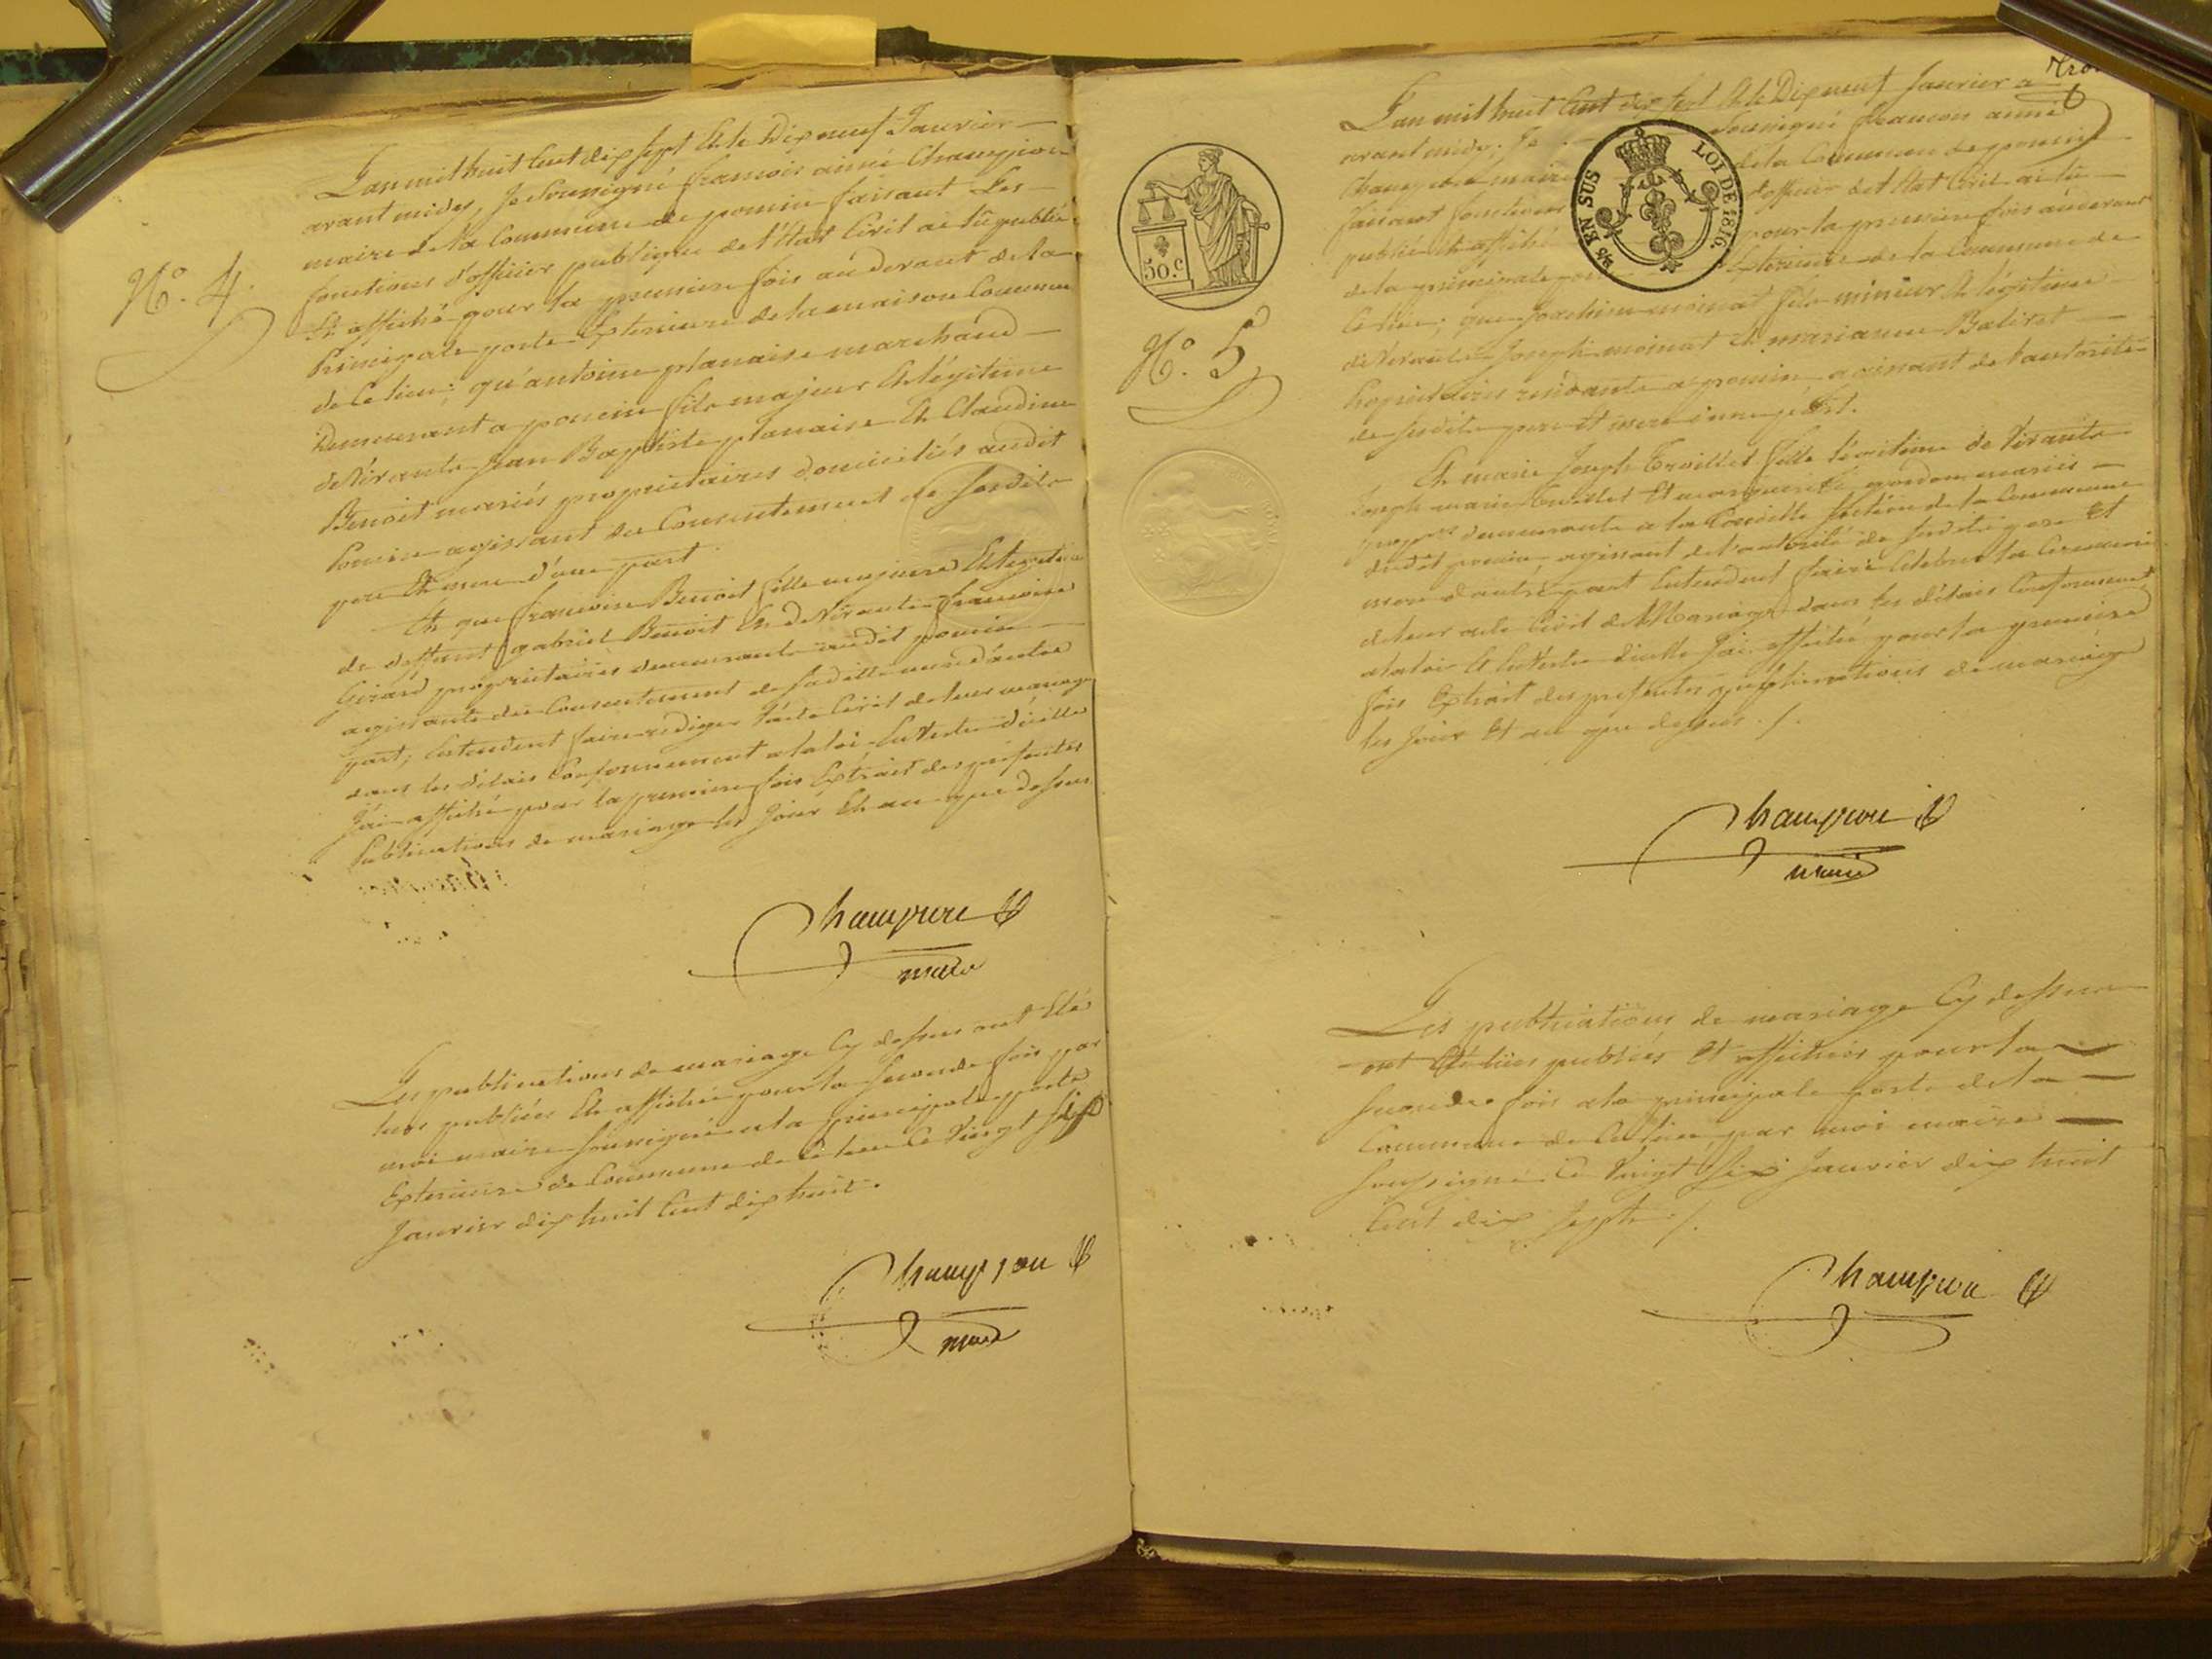 N.º 4.
L'an mil huit Cent dix sept Et le Dix neuf Janvier
avant midy, Je Soussigné francois aimé Champion
maire de la Commune de poncin faisant Les
fonctions d'officier publique de l'État Civil ai lû publié
Et affiché pour la premiere fois au devant de la
Principale porte Exterieure de la maison Commune
de Ce lieu; qu'antoine planaise marchand
Demeurant a poncin fils majeur Et légitime
de Vivants Jean Baptiste planaise Et Claudine
Benoit mariés proprietaires domiciliés audit
Poncin agissant du Consentement de sesdits
pere Et mere d'une part.
Et que francoise Benoit fille majeure Et legitime
de deffunt gabriel Benoit Et de Vivante francoise
Girard proprietaires demeurante audit poncin
agissante du Consentement de sadite mere d'autre
part; Entendent faire rediger l'acte Civil de leur mariage
dans les délais Conformement a la loi En Vertu d'icelle
J'ai affiché pour la premiere fois Extrait des presentes
Publications de mariage les Jour Et an que dessus
Champion
maire
Les publications de mariage Cy dessus ont Eté
lues publiées Et affichées pour la seconde fois par
moi maire soussigné a la principale porte
Exterieure de Commune de Ce lieu Ce Vingt six
Janvier dix huit Cent dix huit.
Champion
maire
50.C
N.º 5
25 EN SUS
LOI DE 1816.
L'an mil huit Cent dix sept Et le Dix neuf Janvier a
avant midy; Je Soussigné francois aimé
Champion maire de la Commune de poncin
faisant fonctions d'officier de l'Etat Civil ai lû
publié Et affiché pour la premiere fois au devant
de la principale porte Exterieure de la Commune de
Ce lieu; que Joachim moinat fils mineur Et légitime
de Vivants Joseph moinat Et marianne Balivet
proprietaires residants a poncin agissant de l'autorité
de sesdits pere Et mere d'une part.
Et marie Joseph Trvillet fille légitime de Vivants
Joseph marie Et marguerite mariés
demeurants a la section de la Commune
dudit poncin, agissant de l'autorité de sesdits pere Et
mere d'autre part Entendent faire Celebrer la Ceremonie
de leur acte Civil de Mariage dans les délais Conformement
a la loi Et En Vertu d'icelle J'ai affiché pour la premiere
fois Extrait des presentes publications de mariage
les Jour Et an que dessus ./.
Champion
maire
Les publications de mariage Cy dessus
ont Eté lües publiés Et affichés pour la
seconde fois a la principale porte de la
Commune de Ce lieu par moi maire
soussigné Ce Vingt six Janvier dix huit
Cent dix sept ./.
Champion